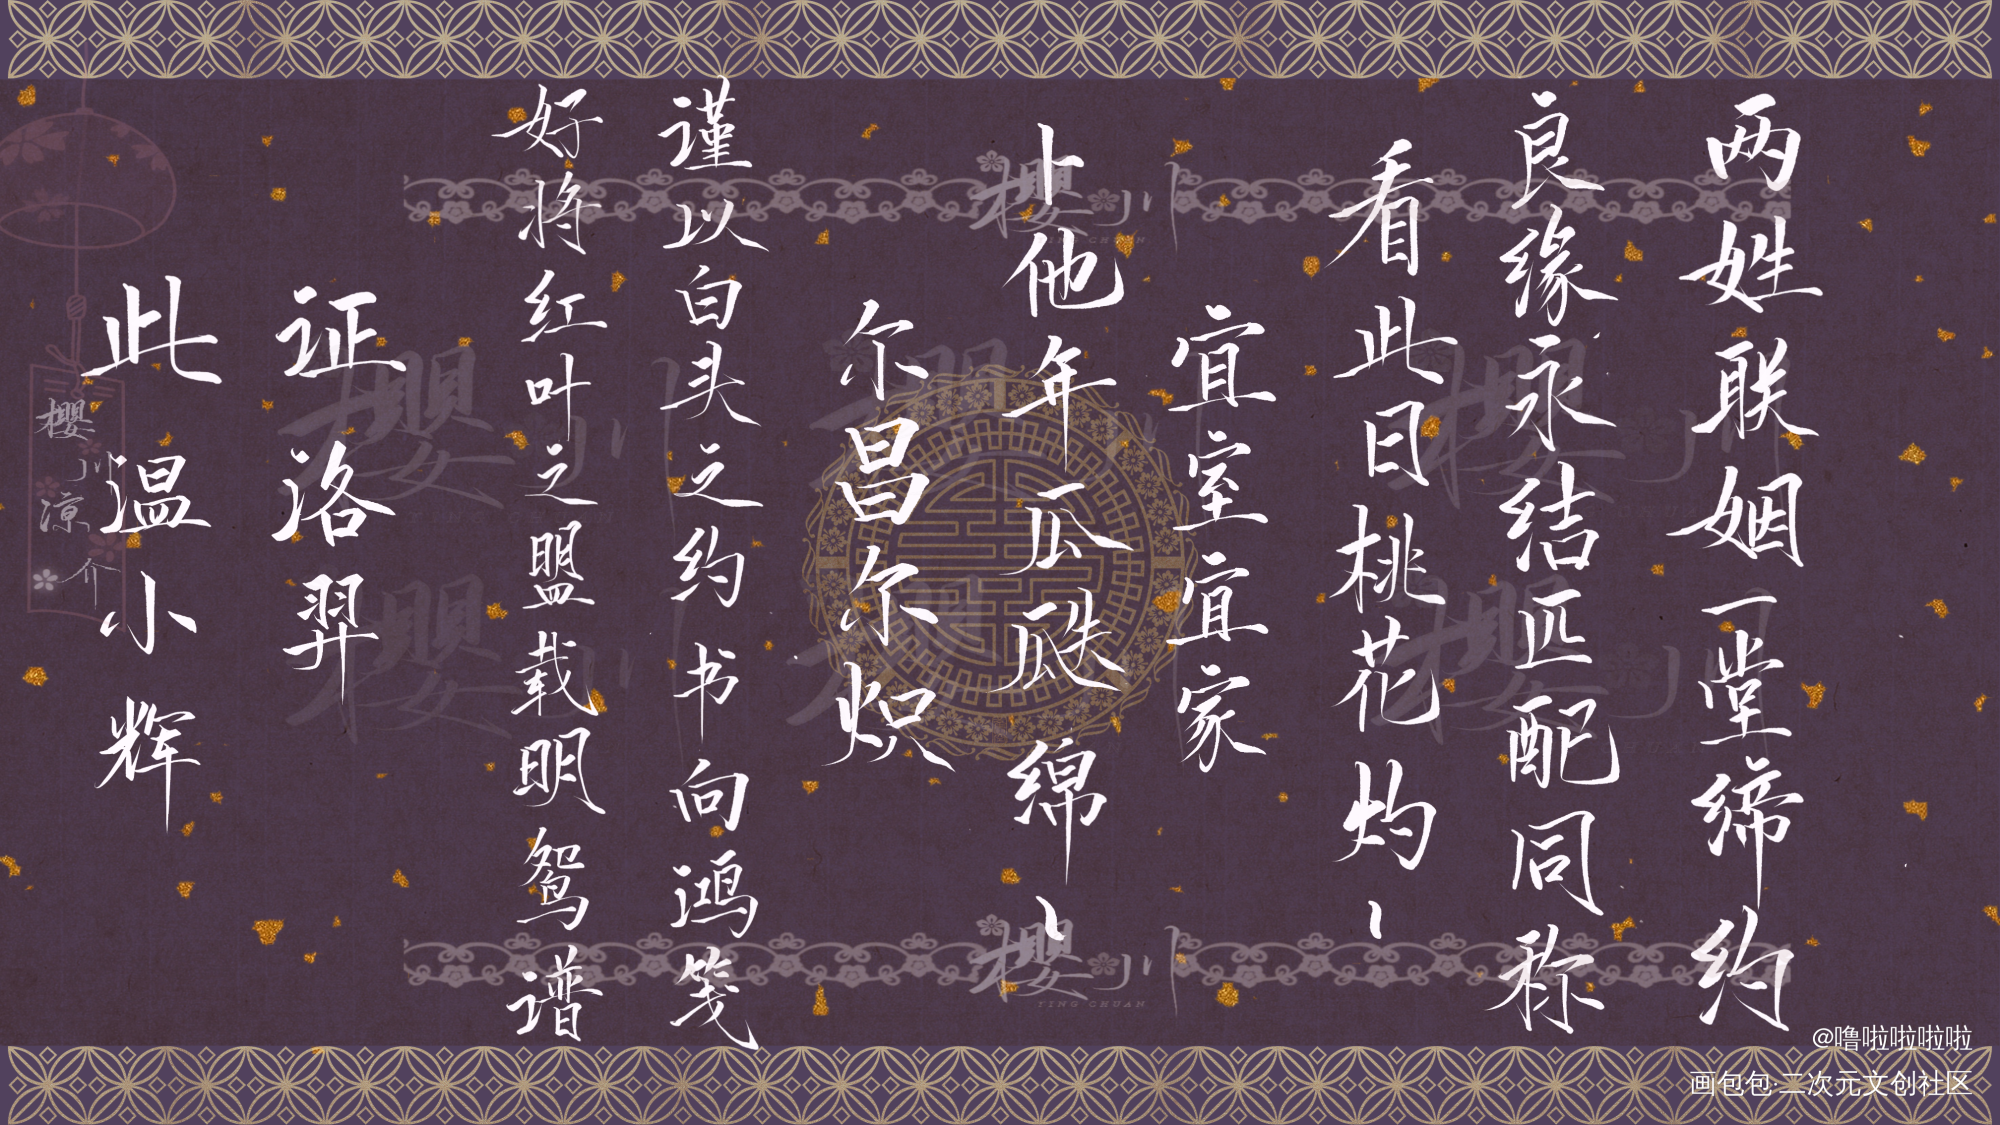 两姓联姻一堂缔约
良缘永结匹配同称
看此日桃花灼丶
宜室宜家
卜他年瓜瓞绵丶
尔昌尔炽
谨以白头之约书向鸿笺
好将红叶之盟载明鸳谱
证洛羿
此温小辉
櫻川
YING CHUAN
櫻川涼介
@噜啦啦啦啦
画包包·二次元文创社区